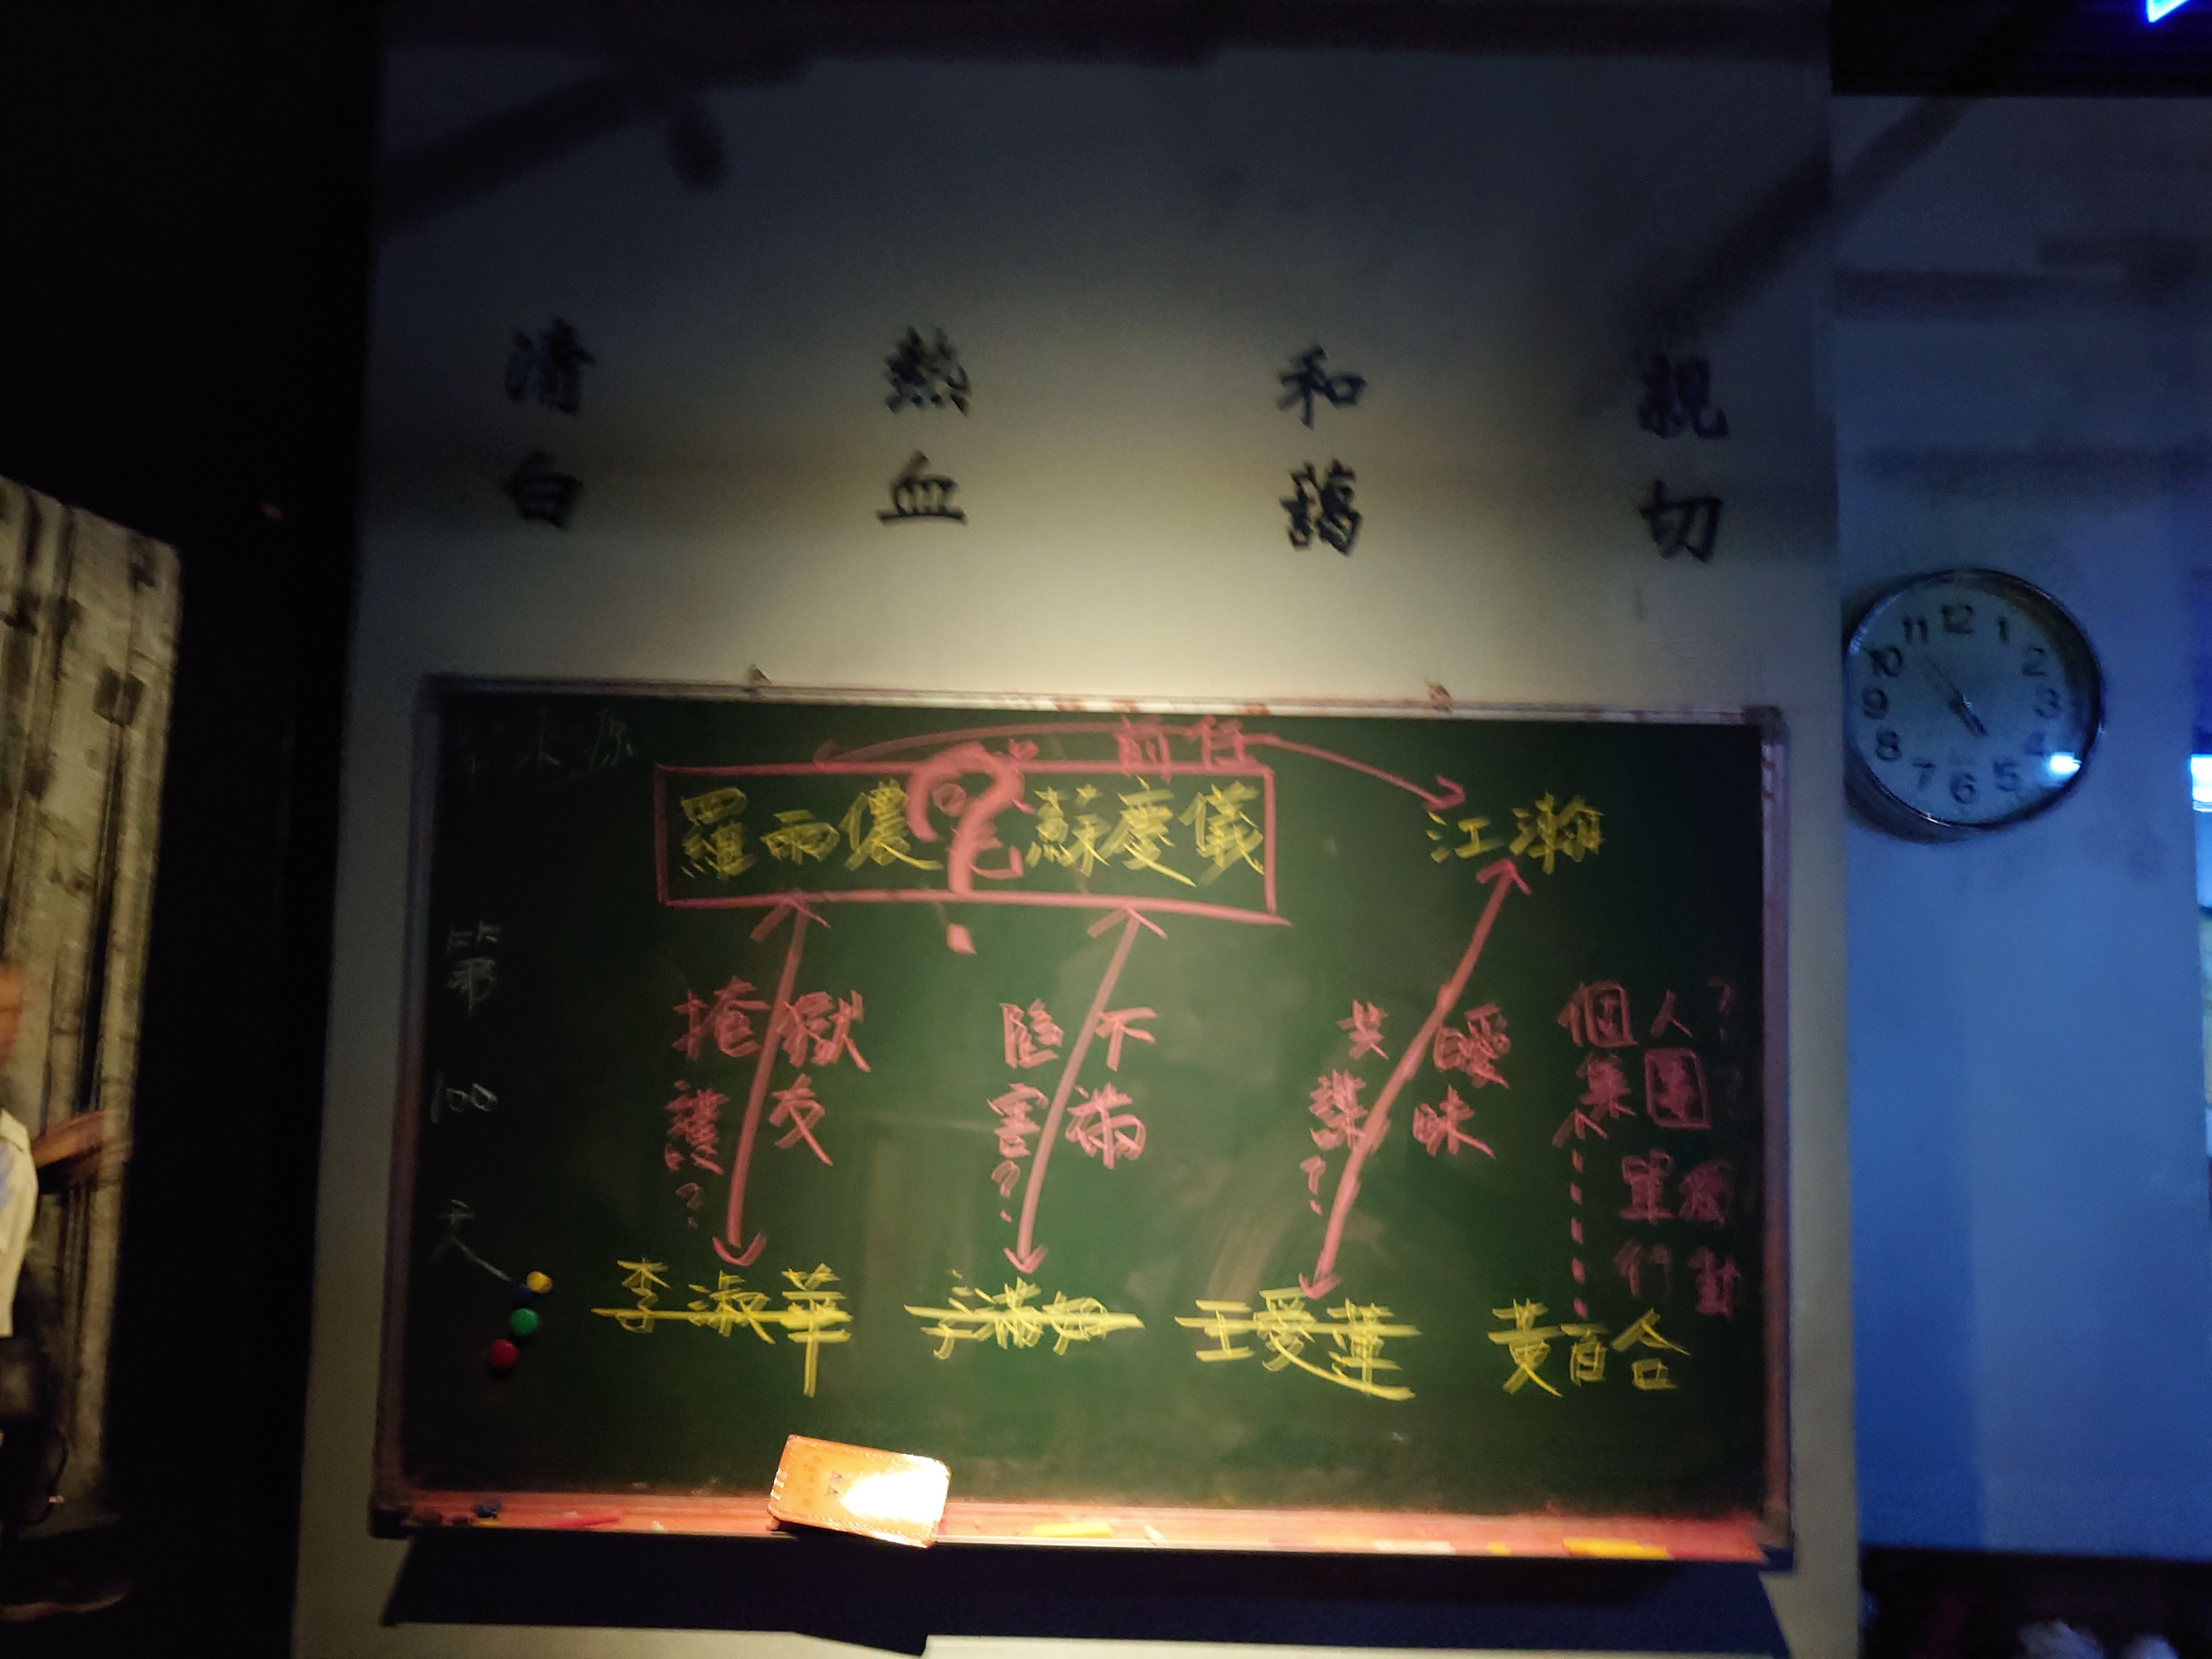 親切
和藹
熱血
清白
前任
羅雨儂
蘇慶儀
江瀚
第100天
獄友
掩護?
不滿
陷害?
曖昧
共謀?
個人?
集團?
單獨
行動
李淑華
王愛蓮
黃百合
11 12 1
10 2
9 3
8 4
7 6 5